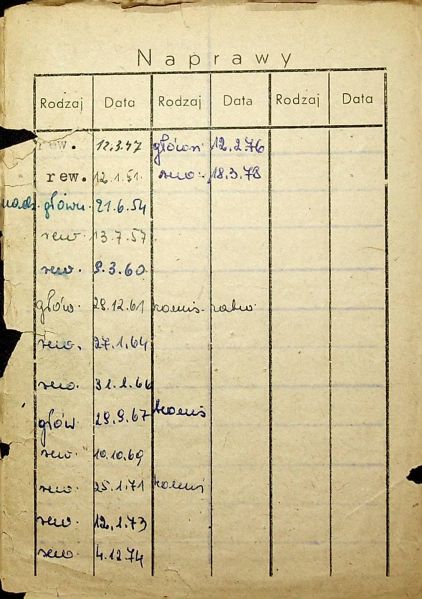 Naprawy
Rodzaj Data Rodzaj Data Rodzaj Data
rew. 12.3.47 główn 12.2.76
rew. 12.1.51. rew. 18.3.78
główn. 21.6.54
rew. 13.7.57
rew. 9.3.60
głów. 28.12.61
rew. 27.1.64
rew. 31.1.66
głów. 29.9.67
rew. 10.10.69
rew. 25.1.71
rew. 12.1.73
rew. 4.12.74